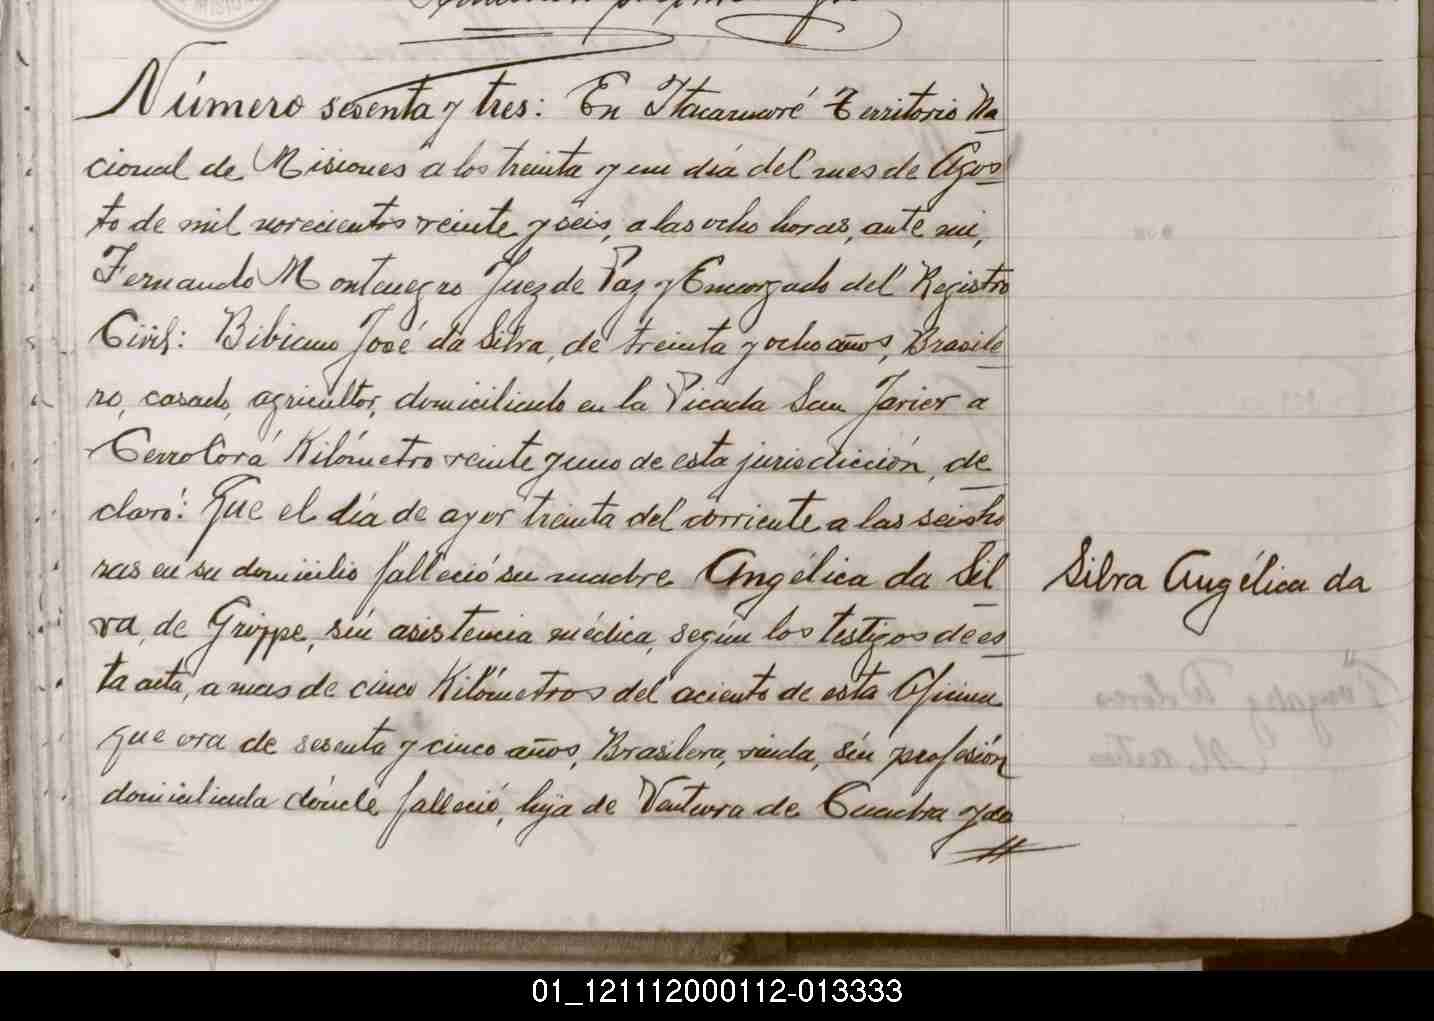 Número sesenta y tres: En Itacaruaré Territorio Na
cional de Misiones a los treinta y un día del mes de Agos
to de mil novecientos veinte y seis, a las ocho horas, ante mi,
Fernando Montenegro Juez de Paz y Encargado del Registro
Civil: Bibiano José da Silva, de treinta y ocho años, Brasile
ro, casado, agricultor, domiciliado en la Picada San Javier a
Cerro Corá Kilómetro veinte y uno de esta jurisdicción, de
claró: Que el día de ayer treinta del corriente a las seis ho
ras en su domicilio falleció su madre Angélica da Sil
va, de Grippe, sin asistencia médica, según los testigos de es
ta acta, a mas de cinco Kilómetros del aciento de esta Oficina
que era de sesenta y cinco años, Brasilera, viuda, sin profesión
domiciliada dónde falleció, hija de Ventura de Cuadra y de
Silva Angélica da
01_121112000112-013333